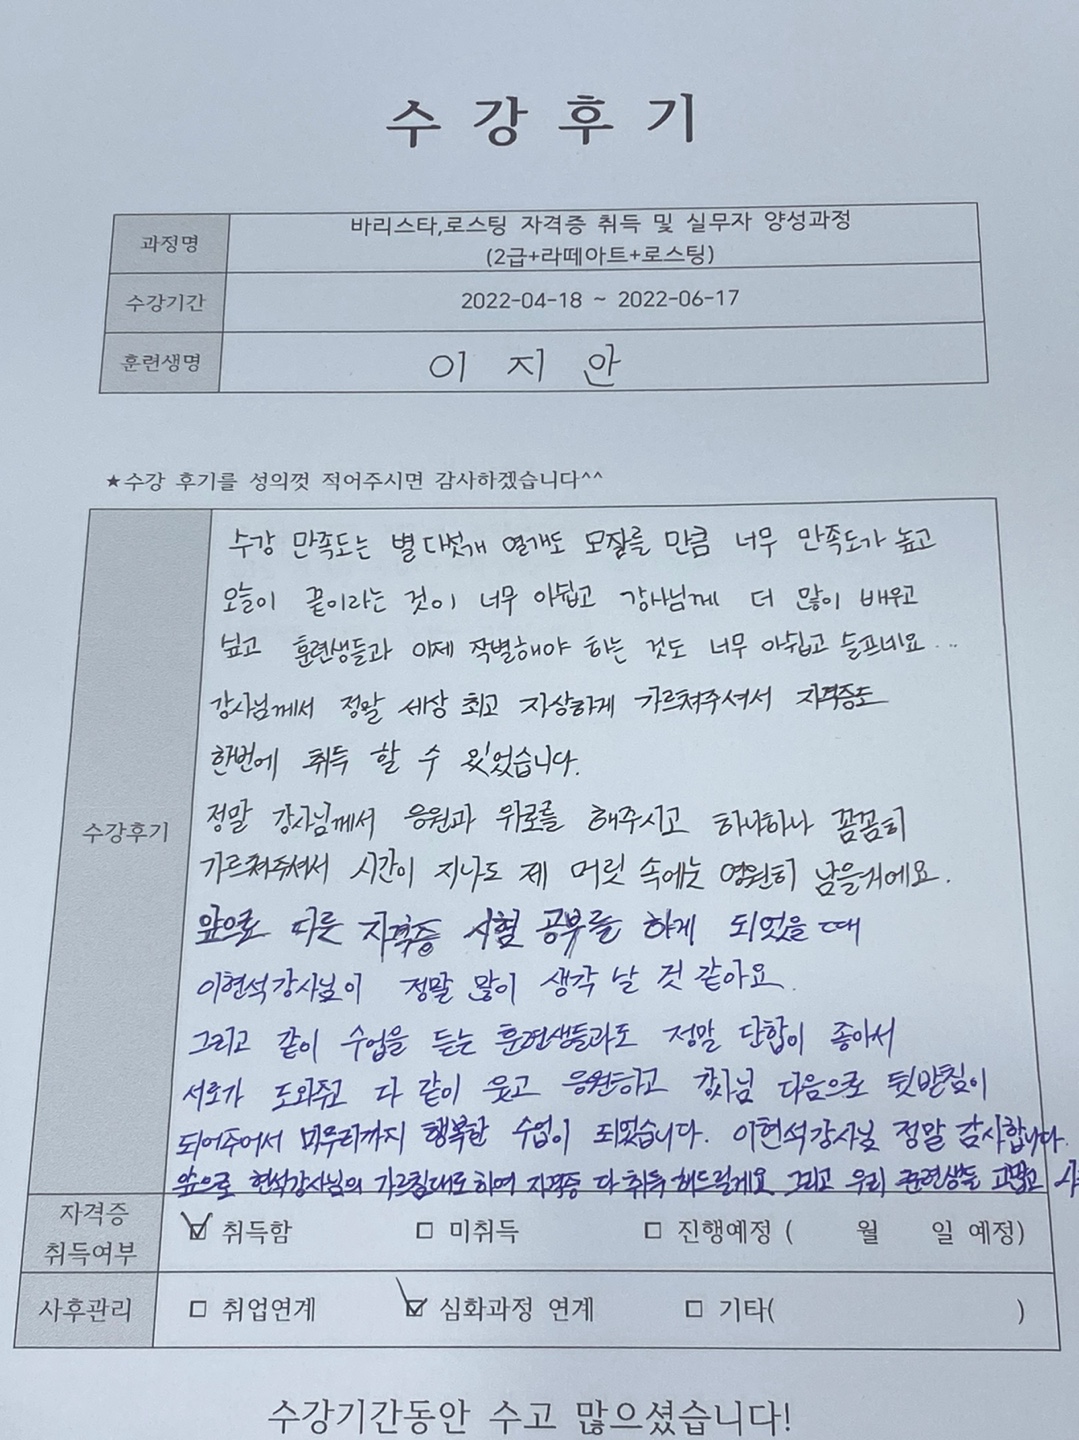 수강후기
과정명
바리스타,로스팅 자격증 취득 및 실무자 양성과정
(2급+라떼아트+로스팅)
수강기간
2022-04-18 ~ 2022-06-17
훈련생명
이지안
★수강 후기를 성의껏 적어주시면 감사하겠습니다^^
수강후기
수강 만족도는 별 다섯개 열개도 모잘를 만큼 너무 만족도가 높고
오늘이 끝이라는 것이 너무 아쉽고 강사님께 더 많이 배우고
싶고 훈련생들과 이제 작별해야 하는 것도 너무 아쉽고 슬프네요...
강사님께서 정말 세상 최고 자상하게 가르쳐주셔서 자격증도
한번에 취득 할 수 있었습니다.
정말 강사님께서 응원과 위로를 해주시고 하나하나 꼼꼼히
가르쳐주셔서 시간이 지나도 제 머릿 속에는 영원히 남을거에요.
앞으로 다른 자격증 시험 공부를 하게 되었을 때
이현석강사님이 정말 많이 생각 날 것 같아요.
그리고 같이 수업을 듣는 훈련생들과도 정말 단합이 좋아서
서로가 도와주고 다 같이 웃고 응원하고 강사님 다음으로 뒷받침이
되어주어서 마무리까지 행복한 수업이 되었습니다. 이현석강사님 정말 감사합니다.
앞으로 현석강사님의 가르침대로하여 자격증 다 취득 해드릴게요 그리고 우리 훈련생들 고맙고
자격증
취득여부
☑ 취득함 □ 미취득 □ 진행예정 ( 월 일 예정)
사후관리
□ 취업연계 ☑ 심화과정 연계 □ 기타( )
수강기간동안 수고 많으셨습니다!